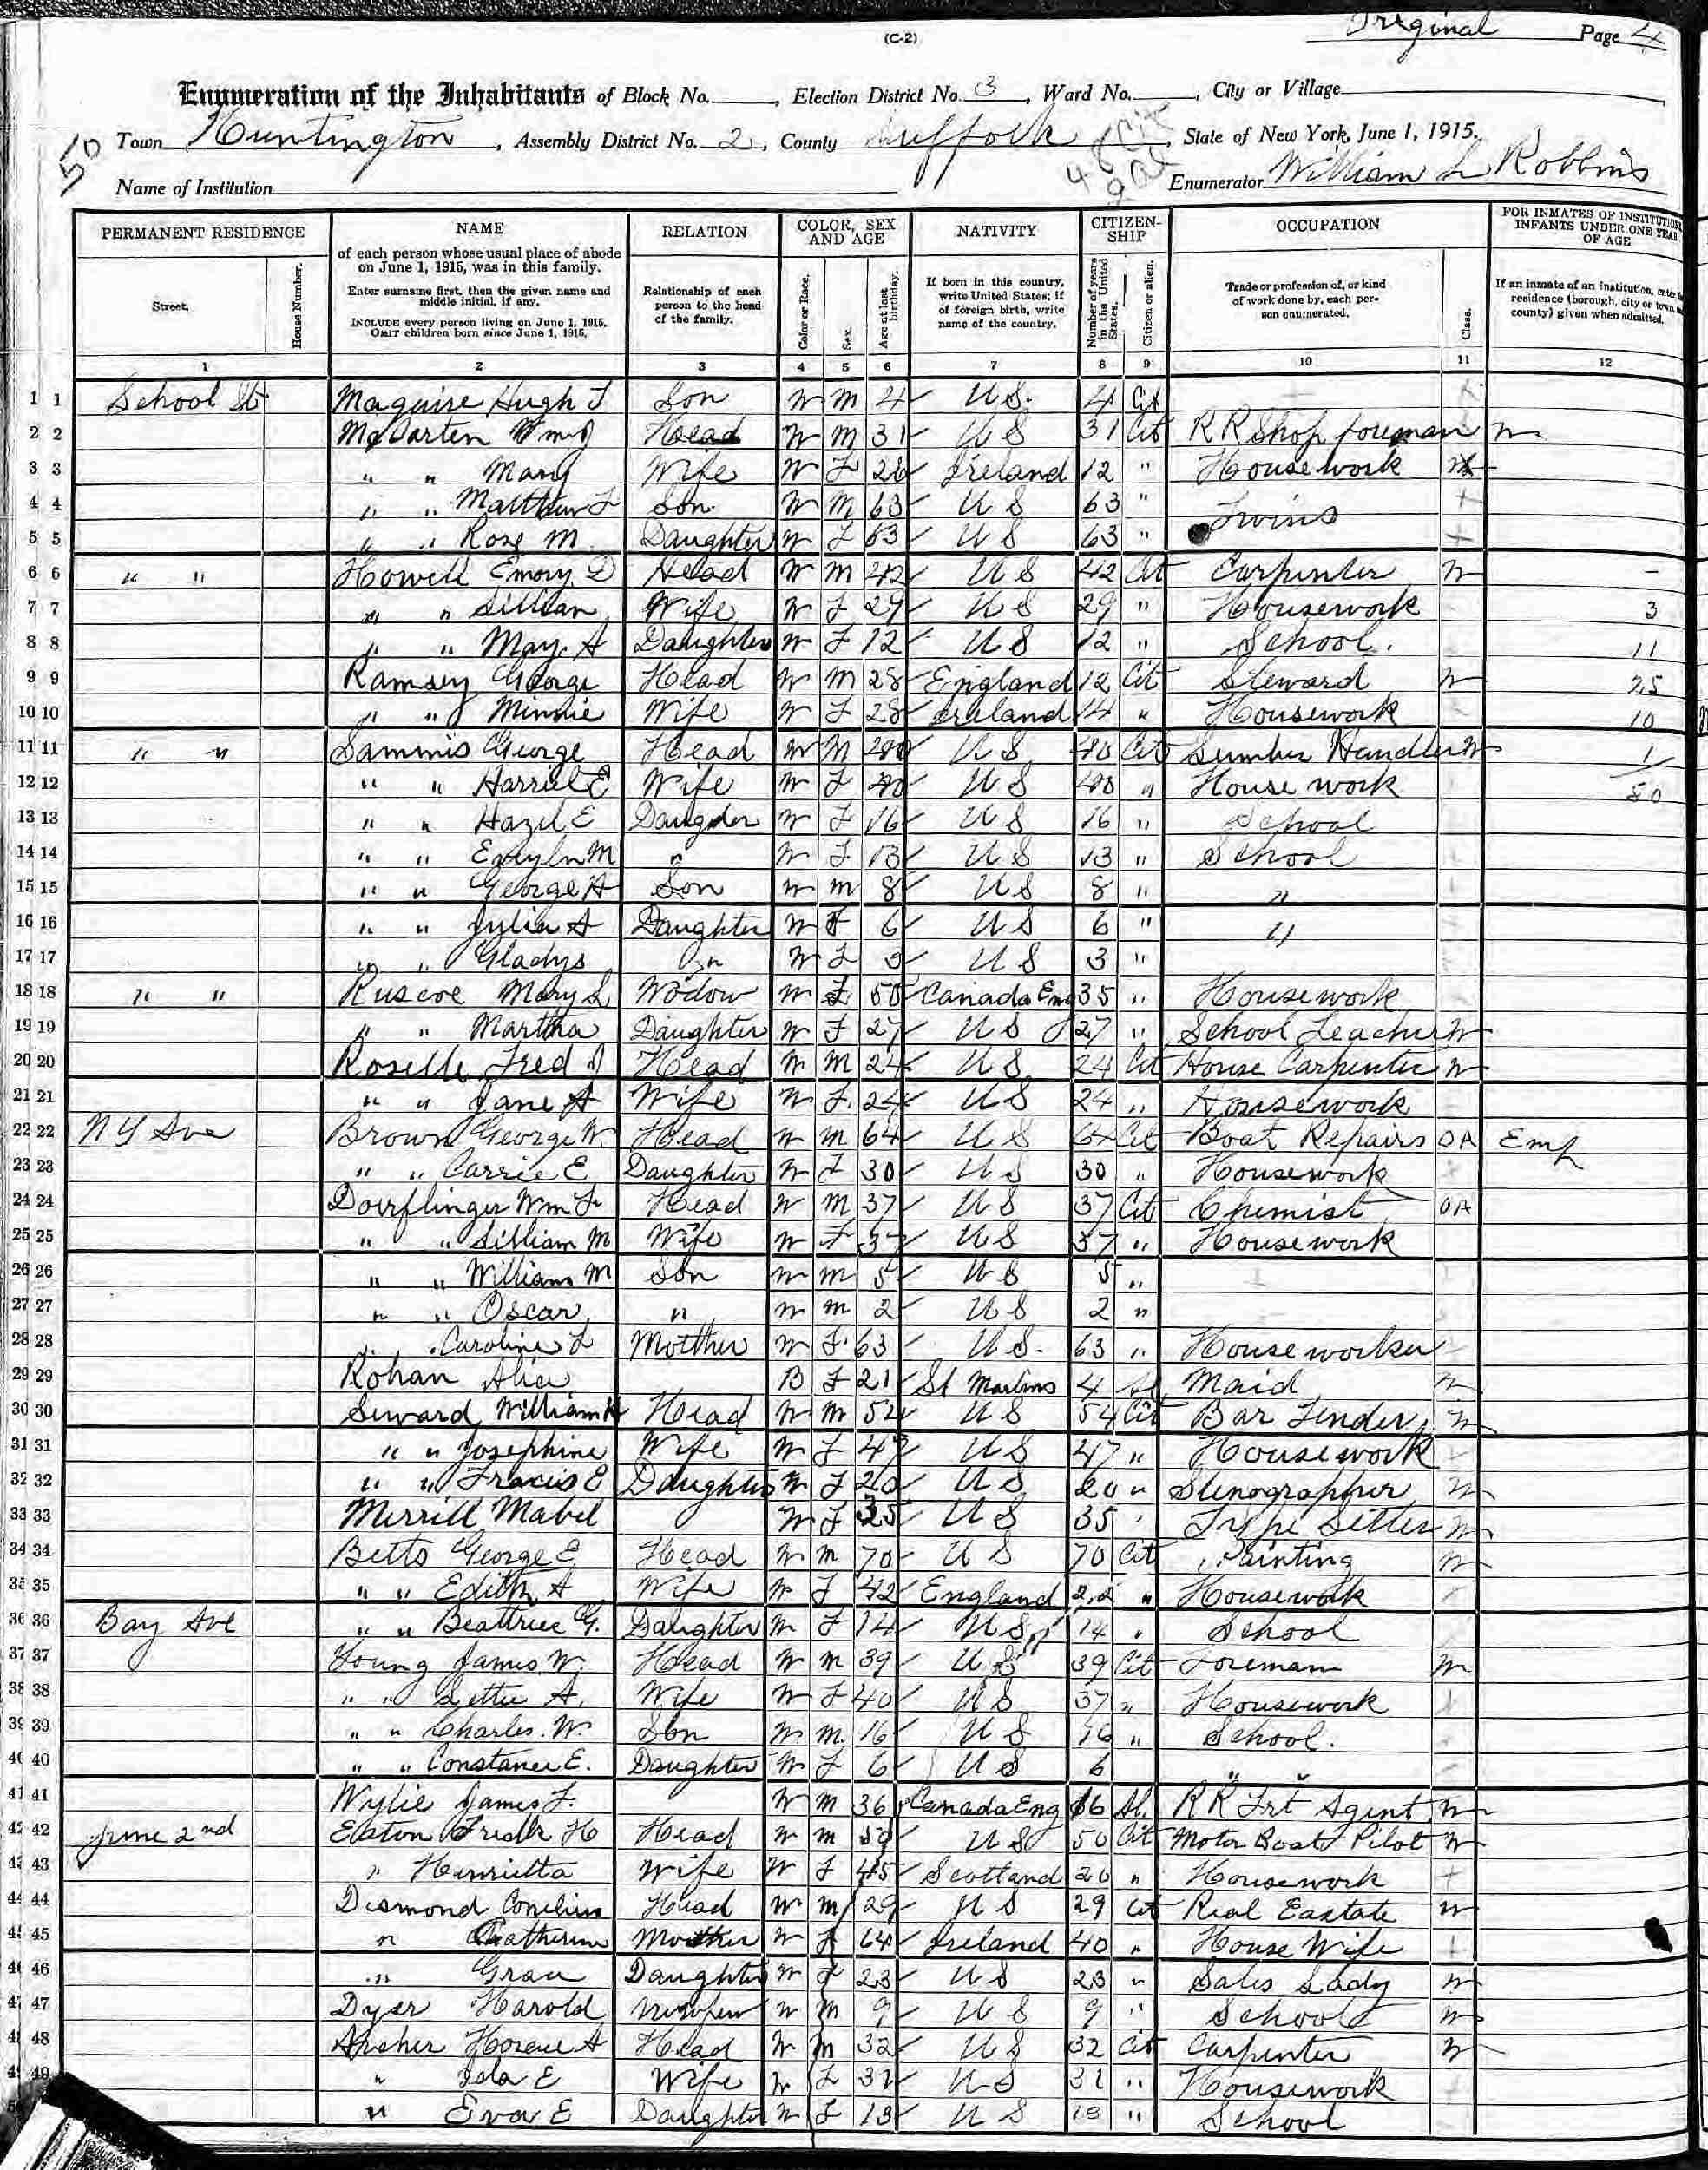 Original Page 4
(C-2)
Enumeration of the Inhabitants of Block No. , Election District No. 3 , Ward No. , City or Village
Town Huntington , Assembly District No. 2 , County Suffolk , State of New York, June 1, 1915.
50
48 Cit
2 al
Name of Institution Enumerator William L Robbins
PERMANENT RESIDENCE NAME RELATION COLOR, SEX AND AGE NATIVITY CITIZENSHIP OCCUPATION FOR INMATES OF INSTITUTIONS INFANTS UNDER ONE YEAR OF AGE
Street. House Number. of each person whose usual place of abode on June 1, 1915, was in this family. Enter surname first, then the given name and middle initial, if any. INCLUDE every person living on June 1, 1915. OMIT children born since June 1, 1915. Relationship of each person to the head of the family. Color or Race. Sex. Age at last birthday. If born in this country, write United States; if of foreign birth, write name of the country. Number of years in the United States. Citizen or alien. Trade or profession of, or kind of work done by, each person enumerated. Class. If an inmate of an institution, enter residence (borough, city or town, county) given when admitted.
1 2 3 4 5 6 7 8 9 10 11 12
1 1 School St Maguire Hugh J Son W M 4 U S. 4 Cit
2 2 Wm J Head W M 31 U S 31 Cit R R Shop foreman W
3 3 " " Mary Wife W F 28 Ireland 12 " Housework
4 4 " " Matthew F Son W M 63 U S 63 " Twins
5 5 " " Rose M. Daughter W F 63 U S 63 "
6 6 " " Howell Emory D Head W M 42 U S 42 Cit Carpenter W -
7 7 " " Lillian Wife W F 29 U S 29 " Housework 3
8 8 " " May A Daughter W F 12 U S 12 " School. 11
9 9 Ramsey George Head W M 28 England 12 Cit Steward W 25
10 10 " " Minnie Wife W F 28 Ireland 14 " Housework 10
11 11 " " Sammis George Head W M 40 U S 40 Cit Lumber Handler W 1
12 12 " " Harriet E Wife W F 40 U S 40 " House work 50
13 13 " " Hazel E Daugder W F 16 U S 16 " School
14 14 " " Evelyn M " W F 13 U S 13 " School
15 15 " " George A Son W M 8 U S 8 " "
16 16 " " Julia A Daughter W F 6 U S 6 " "
17 17 " " Gladys " W F 3 U S 3 "
18 18 " " Ruscoe Mary L Wodow W F 55 Canada Eng 35 " Housework
19 19 " " Martha Daughter W F 27 U S 27 " School Teacher W
20 20 Roselle Fred J Head W M 24 U S 24 Cit House Carpenter W
21 21 " " Jane A Wife W F. 24 U S 24 " Housework
22 22 N Y Ave Brown George W. Head W M 64 U S 64 Cit Boat Repairs O A Emp
23 23 " " Carrie E Daughter W F 30 U S 30 " Housework
24 24 Doerflinger Wm F Head W M 37 U S 37 Cit Chemist O A
25 25 " " Lillian M Wife W F 37 U S 37 " Housework
26 26 " " William M Son W M 5 U S 5 "
27 27 " " Oscar " W M 2 U S 2 "
28 28 " " Caroline L Mother W F. 63 U S. 63 " Houseworker
29 29 Rohan Alice B F 21 St Martins 4 Al Maid W
30 30 Seward William H Head W M 54 U S 54 Cit Bar Tender W
31 31 " " Josephine Wife W F 47 U S 47 " Housework
32 32 " " Francis E Daughter W F 20 U S 20 " Stenographer W
33 33 Merrill Mabel W F 35 U S 35 " Type Setter W
34 34 Betts George E Head W M 70 U S 70 Cit Painting W
35 35 " " Edith A Wife W F 42 England 22 " Housework
36 36 Bay Ave " " Beattrice G. Daughter W F 14 U S 14 " School
37 37 Young James W. Head W M 39 U S 39 Cit Foreman W
38 38 " " Lettie A. Wife W F 40 U S 37 " Housework
39 39 " " Charles. W. Son W M. 16 U S 16 " School.
40 40 " " Constance E. Daughter W F 6 U S 6 " "
41 41 Wylie James F. W M 36 Canada Eng 16 Al. R R Frt Agent W
42 42 June 2nd Easton Fredk H Head W M 50 U S 50 Cit Motor Boat Pilot W
43 43 " Henrietta Wife W F 45 Scotland 20 " Housework
44 44 Desmond Cornelius Head W M 29 U S 29 Cit Real Eastate W
45 45 " Catherine Mother W F 64 Ireland 40 " House Wife
46 46 " Grace Daughter W F 23 U S 23 " Sales Lady W
47 47 Dyer Harold W M 9 U S 9 " School W
48 48 Archer Horace A Head W M 32 U S 32 Cit Carpenter W
49 49 " Ida E Wife W F 31 U S 31 " Housework
" Eva E Daughter W F 13 U S 13 " School